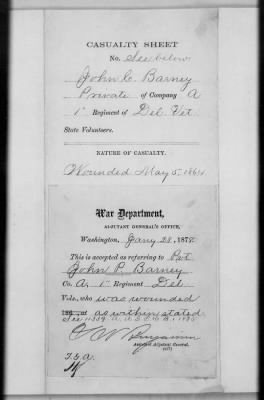 CASUALTY SHEET
No. See below
John C. Barney
Private of Company A
1st Regiment of Del Vet
State Volunteers.
NATURE OF CASUALTY.
Wounded May 5, 1864
War Department,
ADJUTANT GENERAL'S OFFICE,
Washington, Jany 28, 187
This is accepted as referring to Pvt
John P. Barney
Co. A, 1st Regiment Del
Vols., who was wounded
as within stated
Assistant Adjutant General.